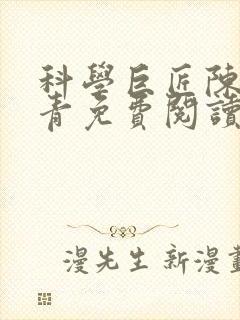 科學巨匠陳
青免費閱讀
漫先生 新漫畫